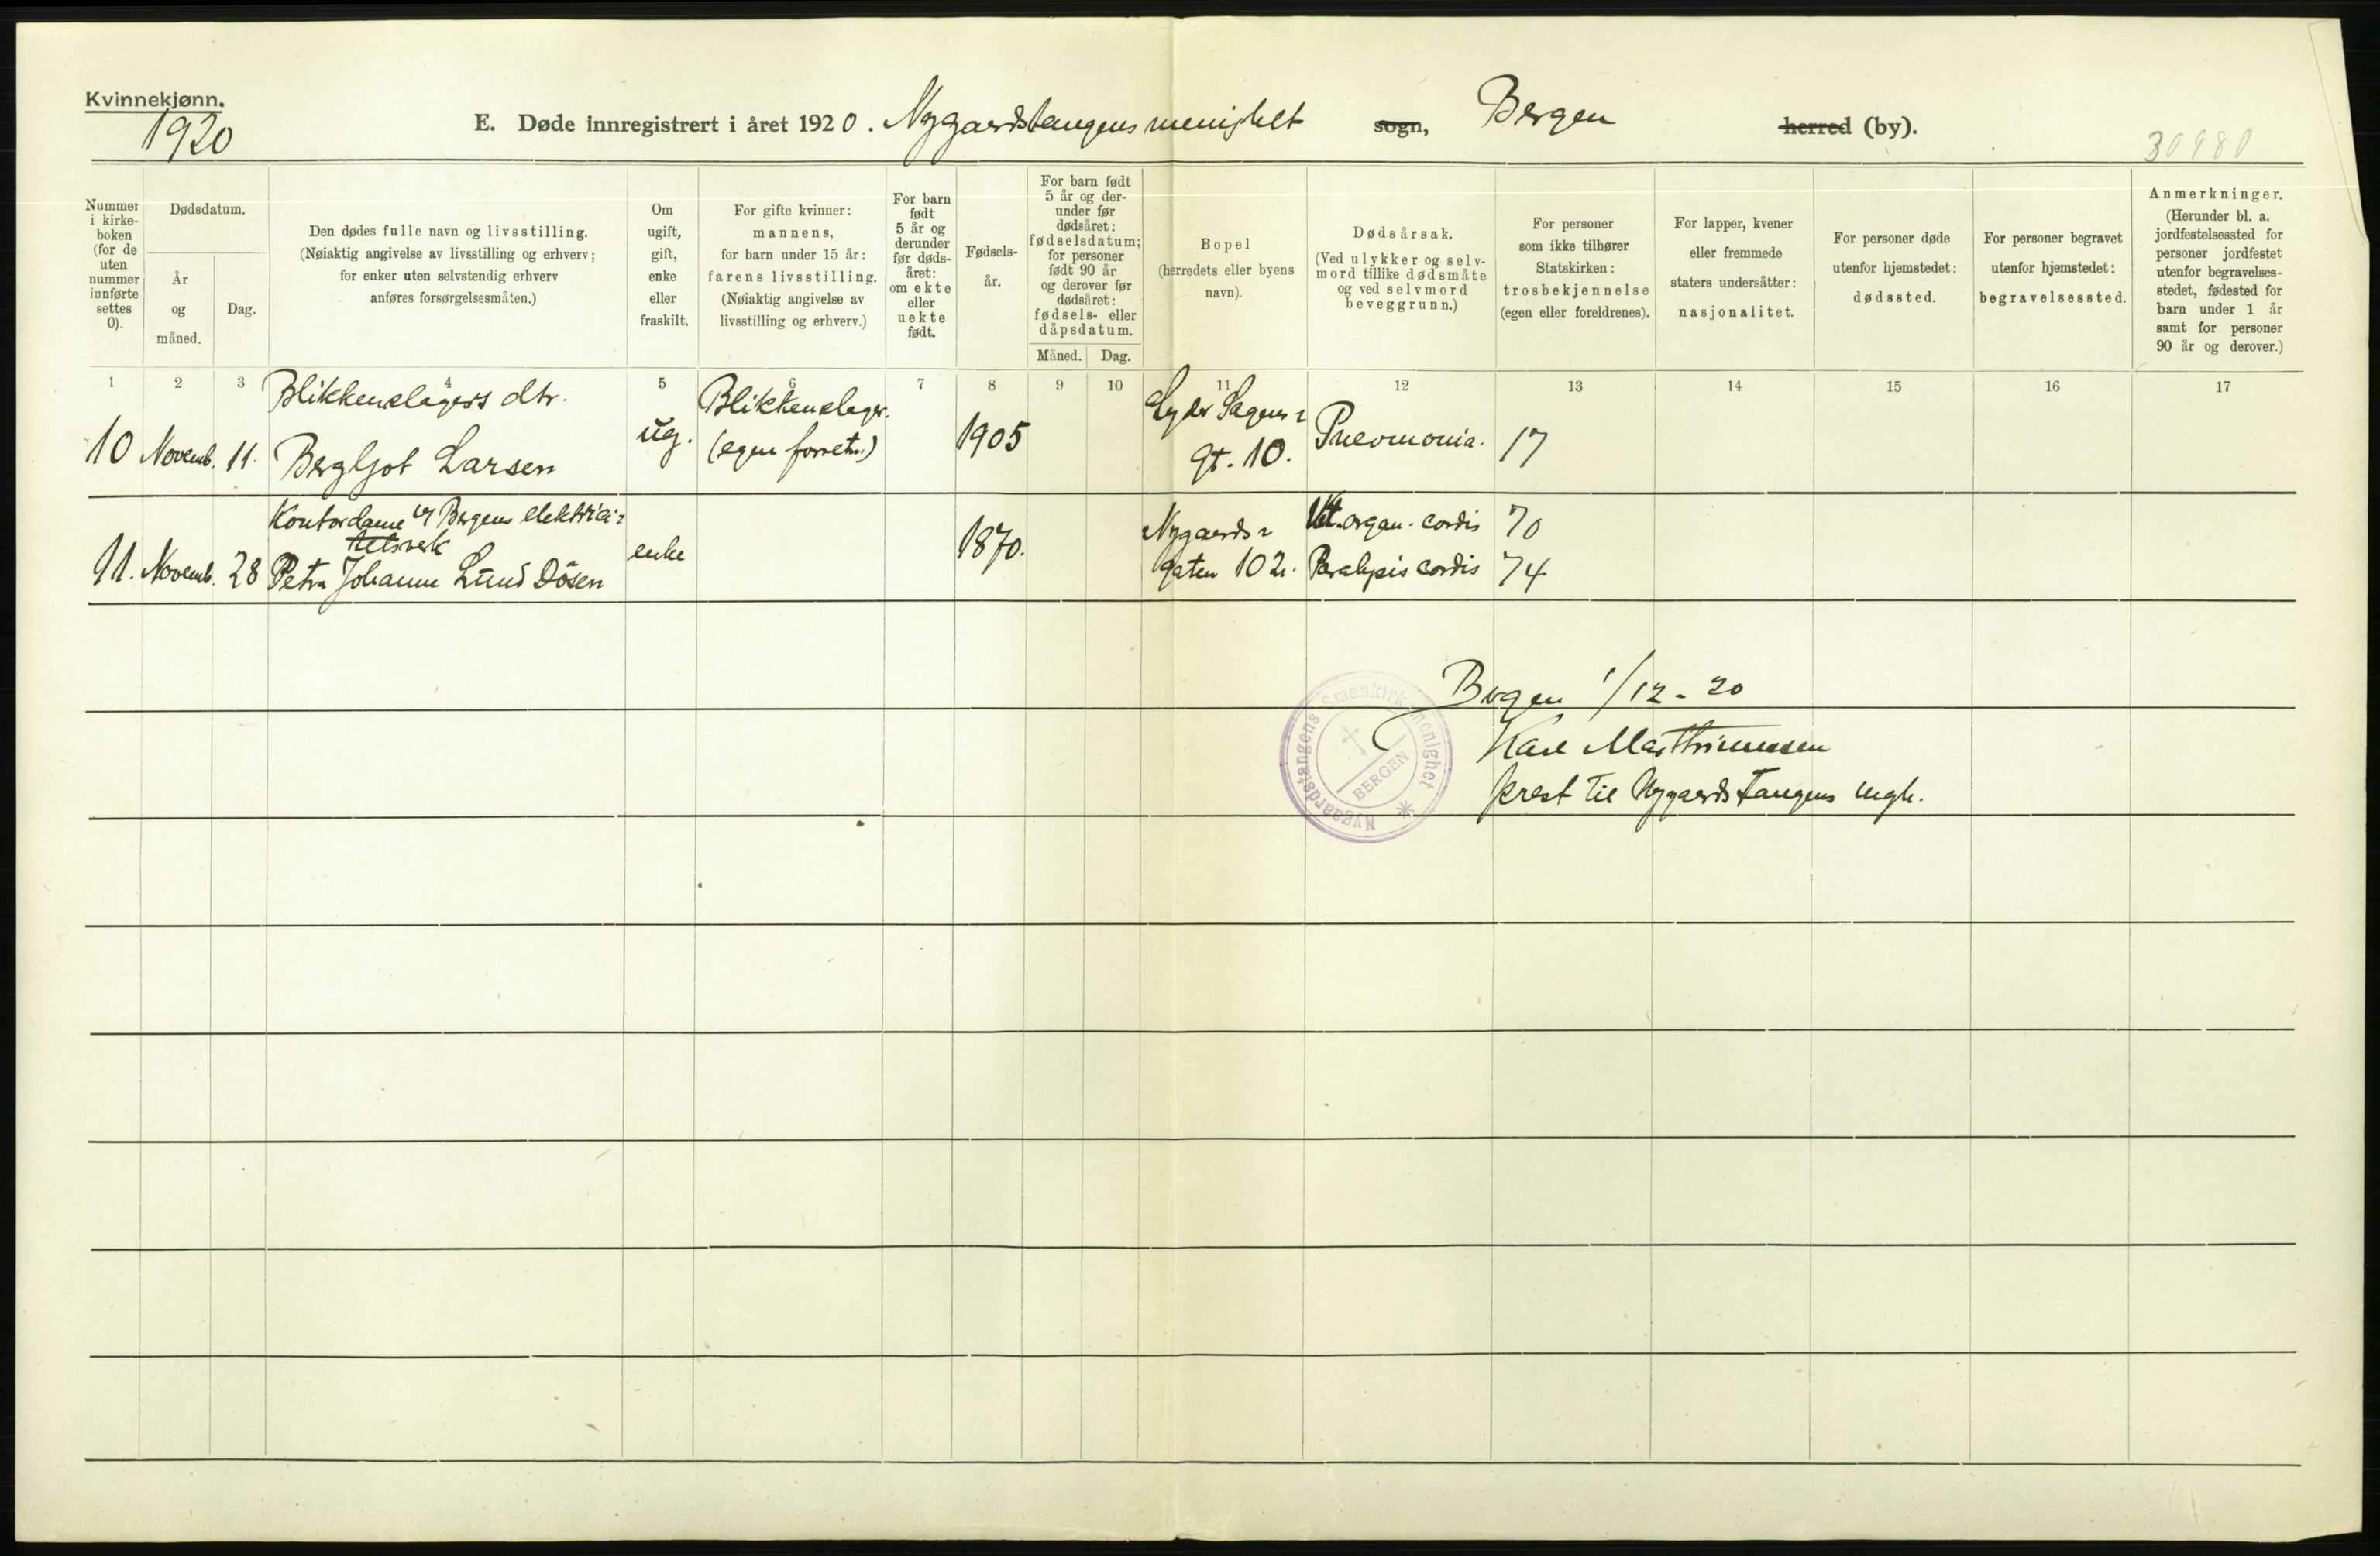 Kvinnekjønn.
1920
E. Døde innregistrert i året 1920. Nygaardstangens menighet sogn, Bergen herred (by).
30980
Nummer i kirkeboken (for de uten nummer innførte settes 0).
Dødsdatum.
År og måned.
Dag.
Den dødes fulle navn og livsstilling.
(Nøiaktig angivelse av livsstilling og erhverv;
for enker uten selvstendig erhverv
anføres forsørgelsesmåten.)
Om ugift, gift, enke eller fraskilt.
For gifte kvinner:
mannens,
for barn under 15 år:
farens livsstilling.
(Nøiaktig angivelse av
livsstilling og erhverv.)
For barn født 5 år og derunder før dødsåret: om ekte eller uekte født.
Fødselsår.
For barn født 5 år og derunder før dødsåret: fødselsdatum; for personer født 90 år og derover før dødsåret: fødsels- eller dåpsdatum.
Måned.
Dag.
Bopel
(herredets eller byens
navn).
Dødsårsak.
(Ved ulykker og selv-
mord tillike dødsmåte
og ved selvmord
beveggrunn.)
For personer
som ikke tilhører
Statskirken:
trosbekjennelse
(egen eller foreldrenes).
For lapper, kvener
eller fremmede
staters undersåtter:
nasjonalitet.
For personer døde
utenfor hjemstedet:
dødssted.
For personer begravet
utenfor hjemstedet:
begravelsessted.
Anmerkninger.
(Herunder bl. a.
jordfestelsessted for
personer jordfestet
utenfor begravelses-
stedet, fødested for
barn under 1 år
samt for personer
90 år og derover.)
1 2 3 4 5 6 7 8 9 10 11 12 13 14 15 16 17
Blikkenslagers dtr.
10 Novemb. 11. Bergljot Larsen
ug.
Blikkenslager.
(egen forretn.)
1905
Lyder Sagens
gt. 10.
Pneomonia.
17
Kontordame v/ Bergens elektrici-
tetsverk
11. Novemb. 28 Petra Johanne Lund Dösen
enke
1870.
Nygaards
gaten 102.
Vit. organ. cordis
Paralysis cordis
70
74
Bergen 1/12-20
Karl Marthinussen
prest til Nygaardstangens mgh.
Nygaardstangens Småkirkemenighet
BERGEN